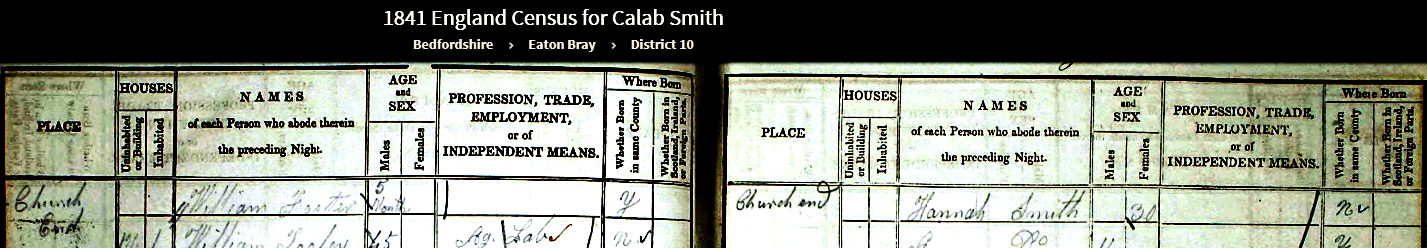 1841 England Census for Calab Smith
Bedfordshire › Eaton Bray › District 10
PLACE
HOUSES
Uninhabited or Building
Inhabited
NAMES
of each Person who abode therein
the preceding Night.
AGE
and
SEX
Males
Females
PROFESSION, TRADE,
EMPLOYMENT,
or of
INDEPENDENT MEANS.
Where Born
Whether Born in same County
Whether Born in Scotland, Ireland, or Foreign Parts.
Church
End
William Foster
5
Months
Y
William
45
Ag. Lab
N
PLACE
HOUSES
Uninhabited or Building
Inhabited
NAMES
of each Person who abode therein
the preceding Night.
AGE
and
SEX
Males
Females
PROFESSION, TRADE,
EMPLOYMENT,
or of
INDEPENDENT MEANS.
Where Born
Whether Born in same County
Whether Born in Scotland, Ireland, or Foreign Parts.
Church end
Hannah Smith
30
N
Do